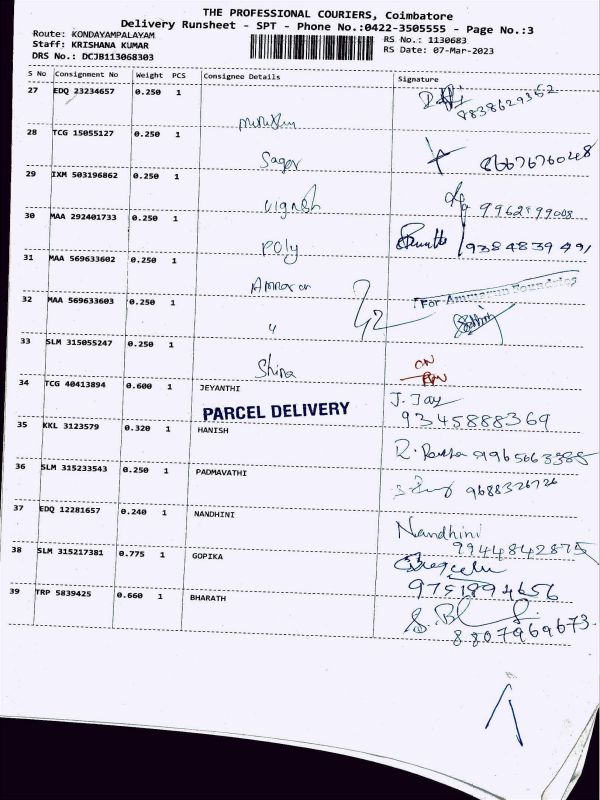 THE PROFESSIONAL COURIERS, Coimbatore
Delivery Runsheet - SPT - Phone No.:0422-3505555 - Page No.:3
Route: KONDAYAMPALAYAM
Staff: KRISHANA KUMAR
DRS No.: DCJB113068303
RS No.: 1130683
RS Date: 07-Mar-2023
S No Consignment No Weight PCS Consignee Details Signature
27 EDQ 23234657 0.250 1
9838629352
28 TCG 15055127 0.250 1
Sagar 8667676048
29 IXM 503196862 0.250 1
Vignesh
30 MAA 292401733 0.250 1
Poly 9384839491
31 MAA 569633602 0.250 1
32 MAA 569633603 0.250 1
For Ammarun Foundries
33 SLM 315055247 0.250 1
Shina
34 TCG 40413894 0.600 1 JEYANTHI J. Jay
PARCEL DELIVERY 9345888369
35 KKL 3123579 0.320 1 HANISH
36 SLM 315233543 0.250 1 PADMAVATHI 9688326726
37 EDQ 12281657 0.240 1 NANDHINI Nandhini
9944842875
38 SLM 315217381 0.775 1 GOPIKA
9751894656
39 TRP 5839425 0.660 1 BHARATH
8807969673